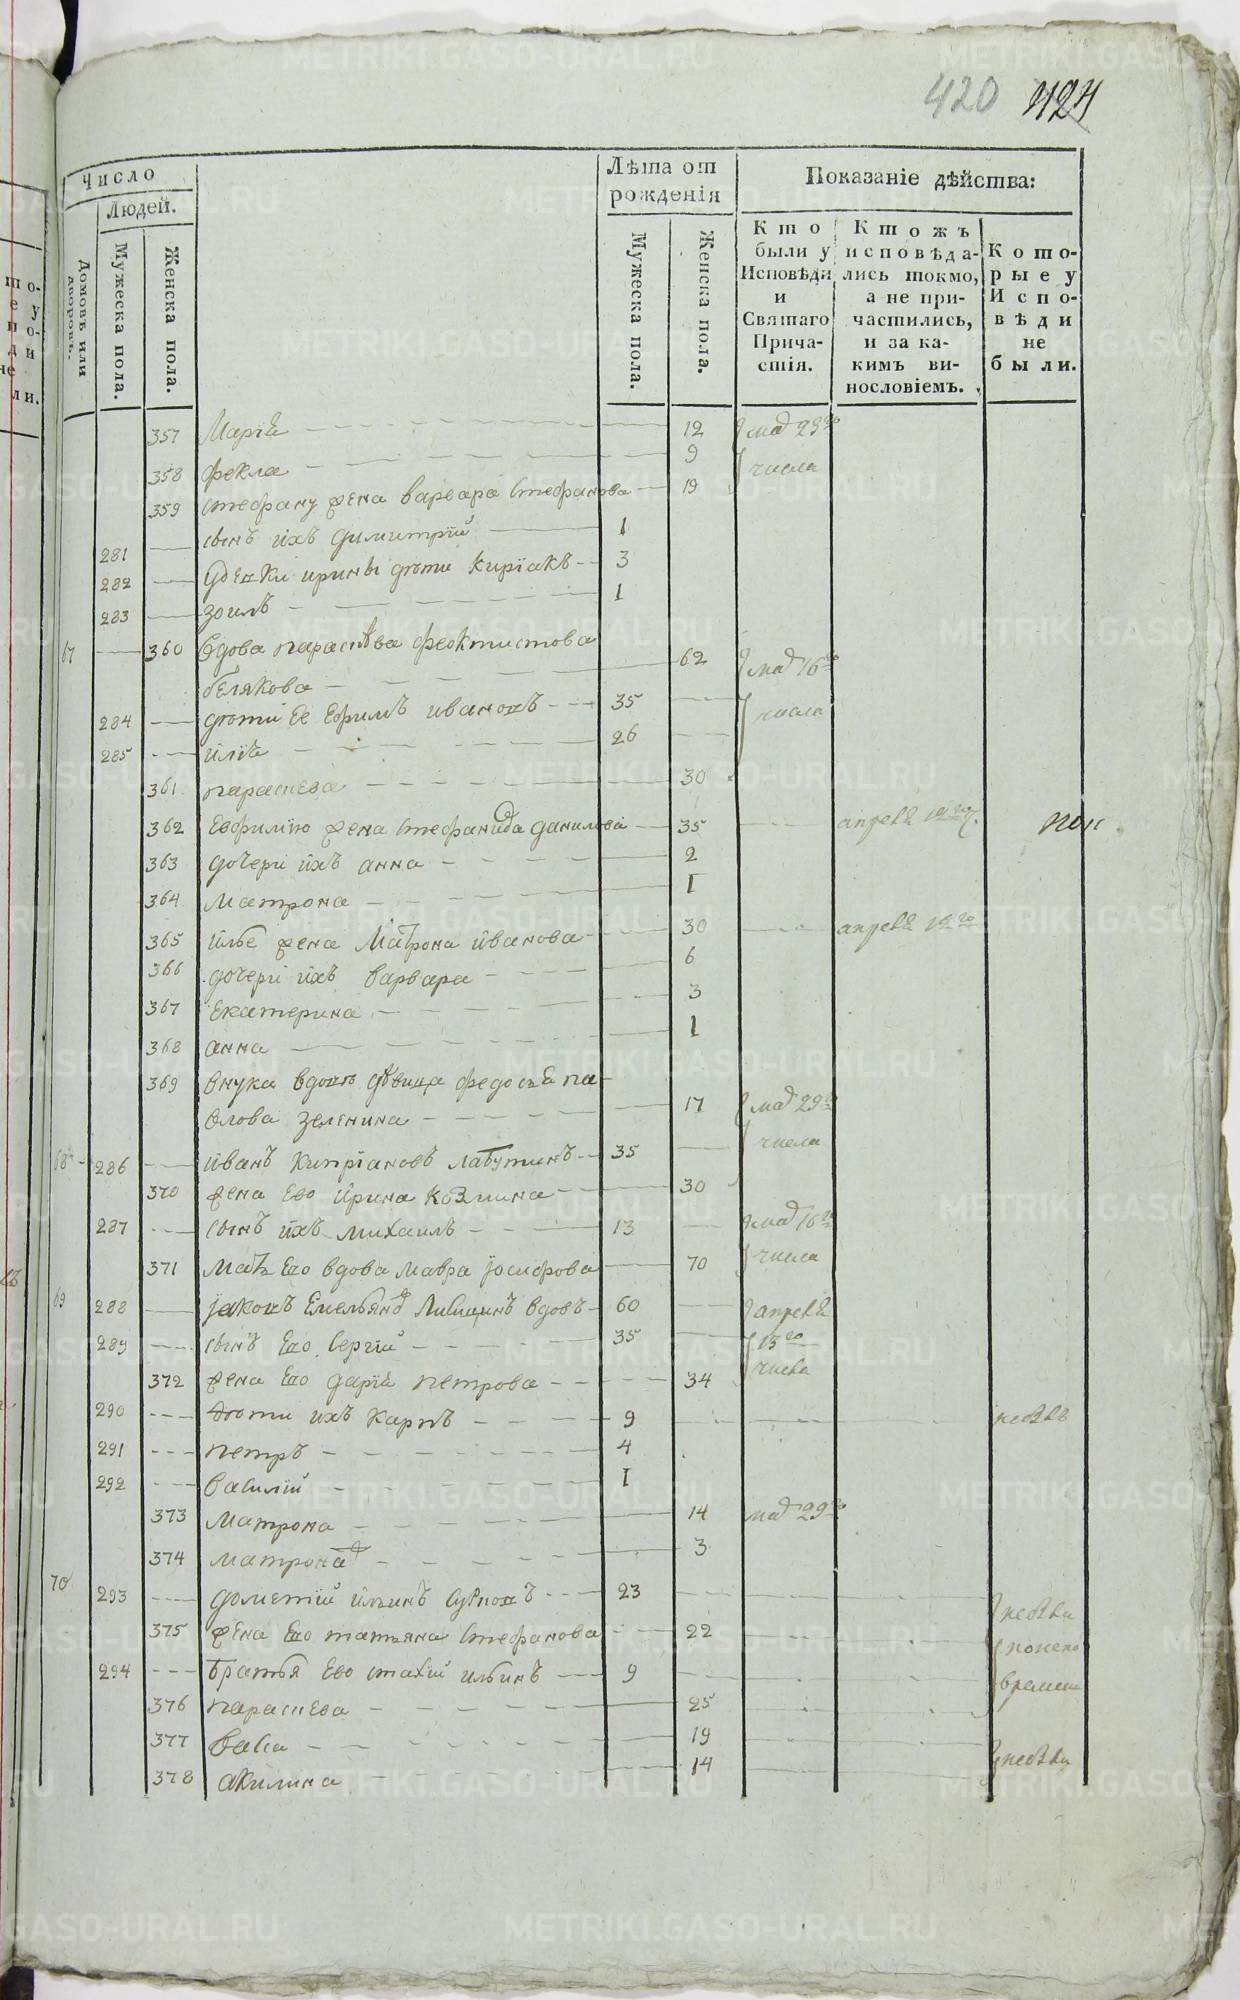 420 424
Число
Людей.
Домовъ или дворовъ.
Мужеска пола.
Женска пола.
Лѣта от рожденія
Мужеска пола.
Женска пола.
Показаніе дѣйства:
Кто были у Исповѣди и Святаго Причастія.
Ктожъ исповѣдались токмо, а не причастились, и за каким винословіемъ.
Которые у Исповѣди не были.
357 Маріѣ 12 маѣ 29го
358 фекла 9 числа
359 стефану жена варвара стефанова 19
281 сынъ ихъ димитрїй 1
282 ирины дѣти кирїакъ 3
283 зоилъ 1
67 360 вдова параскѣва феоктистова
бѣлякова 62 маѣ 16го
284 дѣти ее ефимъ ивановъ 35 числа
285 илїѣ 26
361 параскева 30
362 жена стефанида данилова 35 апрелѣ
363 дочери ихъ анна 2
364 матрона 1
365 илье жена матрона иванова 30 апрелѣ
366 дочери ихъ варвара 6
367 екатерина 3
368 анна 1
369 внука вдовѣ дѣвица федосьѣ па-
влова зеленина 17 маѣ 29го
числа
68 286 иванъ кипрїановъ лабутинъ 35
370 жена ево ирина козмина 30
287 сынъ ихъ михаилъ 13 маѣ 16го
371 мать ево вдова мавра іосифова 70 числа
69 288 іаковъ емельянов вдовъ 60 апрелѣ
289 сынъ ево сергїй 35
372 жена ево дарїѣ петрова 34 числа
290 дѣти ихъ карпъ 9
291 петръ 4
292 василїй 1
373 матрона 14 маѣ 29го
374 матрона 3
70 293 дометїй ильинъ 23
375 жена ево татьяна стефанова 22
294 братья ево ильинъ 9
376 параскева 25
377 васса 19
378 акилина 14
METRIKI.GASO-URAL.RU